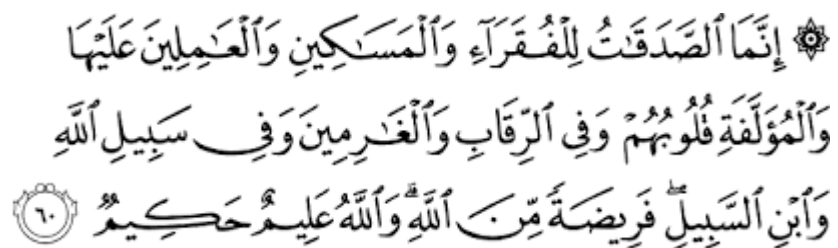 ۞ إِنَّمَا ٱلصَّدَقَٰتُ لِلْفُقَرَآءِ وَٱلْمَسَٰكِينِ وَٱلْعَٰمِلِينَ عَلَيْهَا
وَٱلْمُؤَلَّفَةِ قُلُوبُهُمْ وَفِى ٱلرِّقَابِ وَٱلْغَٰرِمِينَ وَفِى سَبِيلِ ٱللَّهِ
وَٱبْنِ ٱلسَّبِيلِ ۖ فَرِيضَةً مِّنَ ٱللَّهِ ۗ وَٱللَّهُ عَلِيمٌ حَكِيمٌ ٦٠